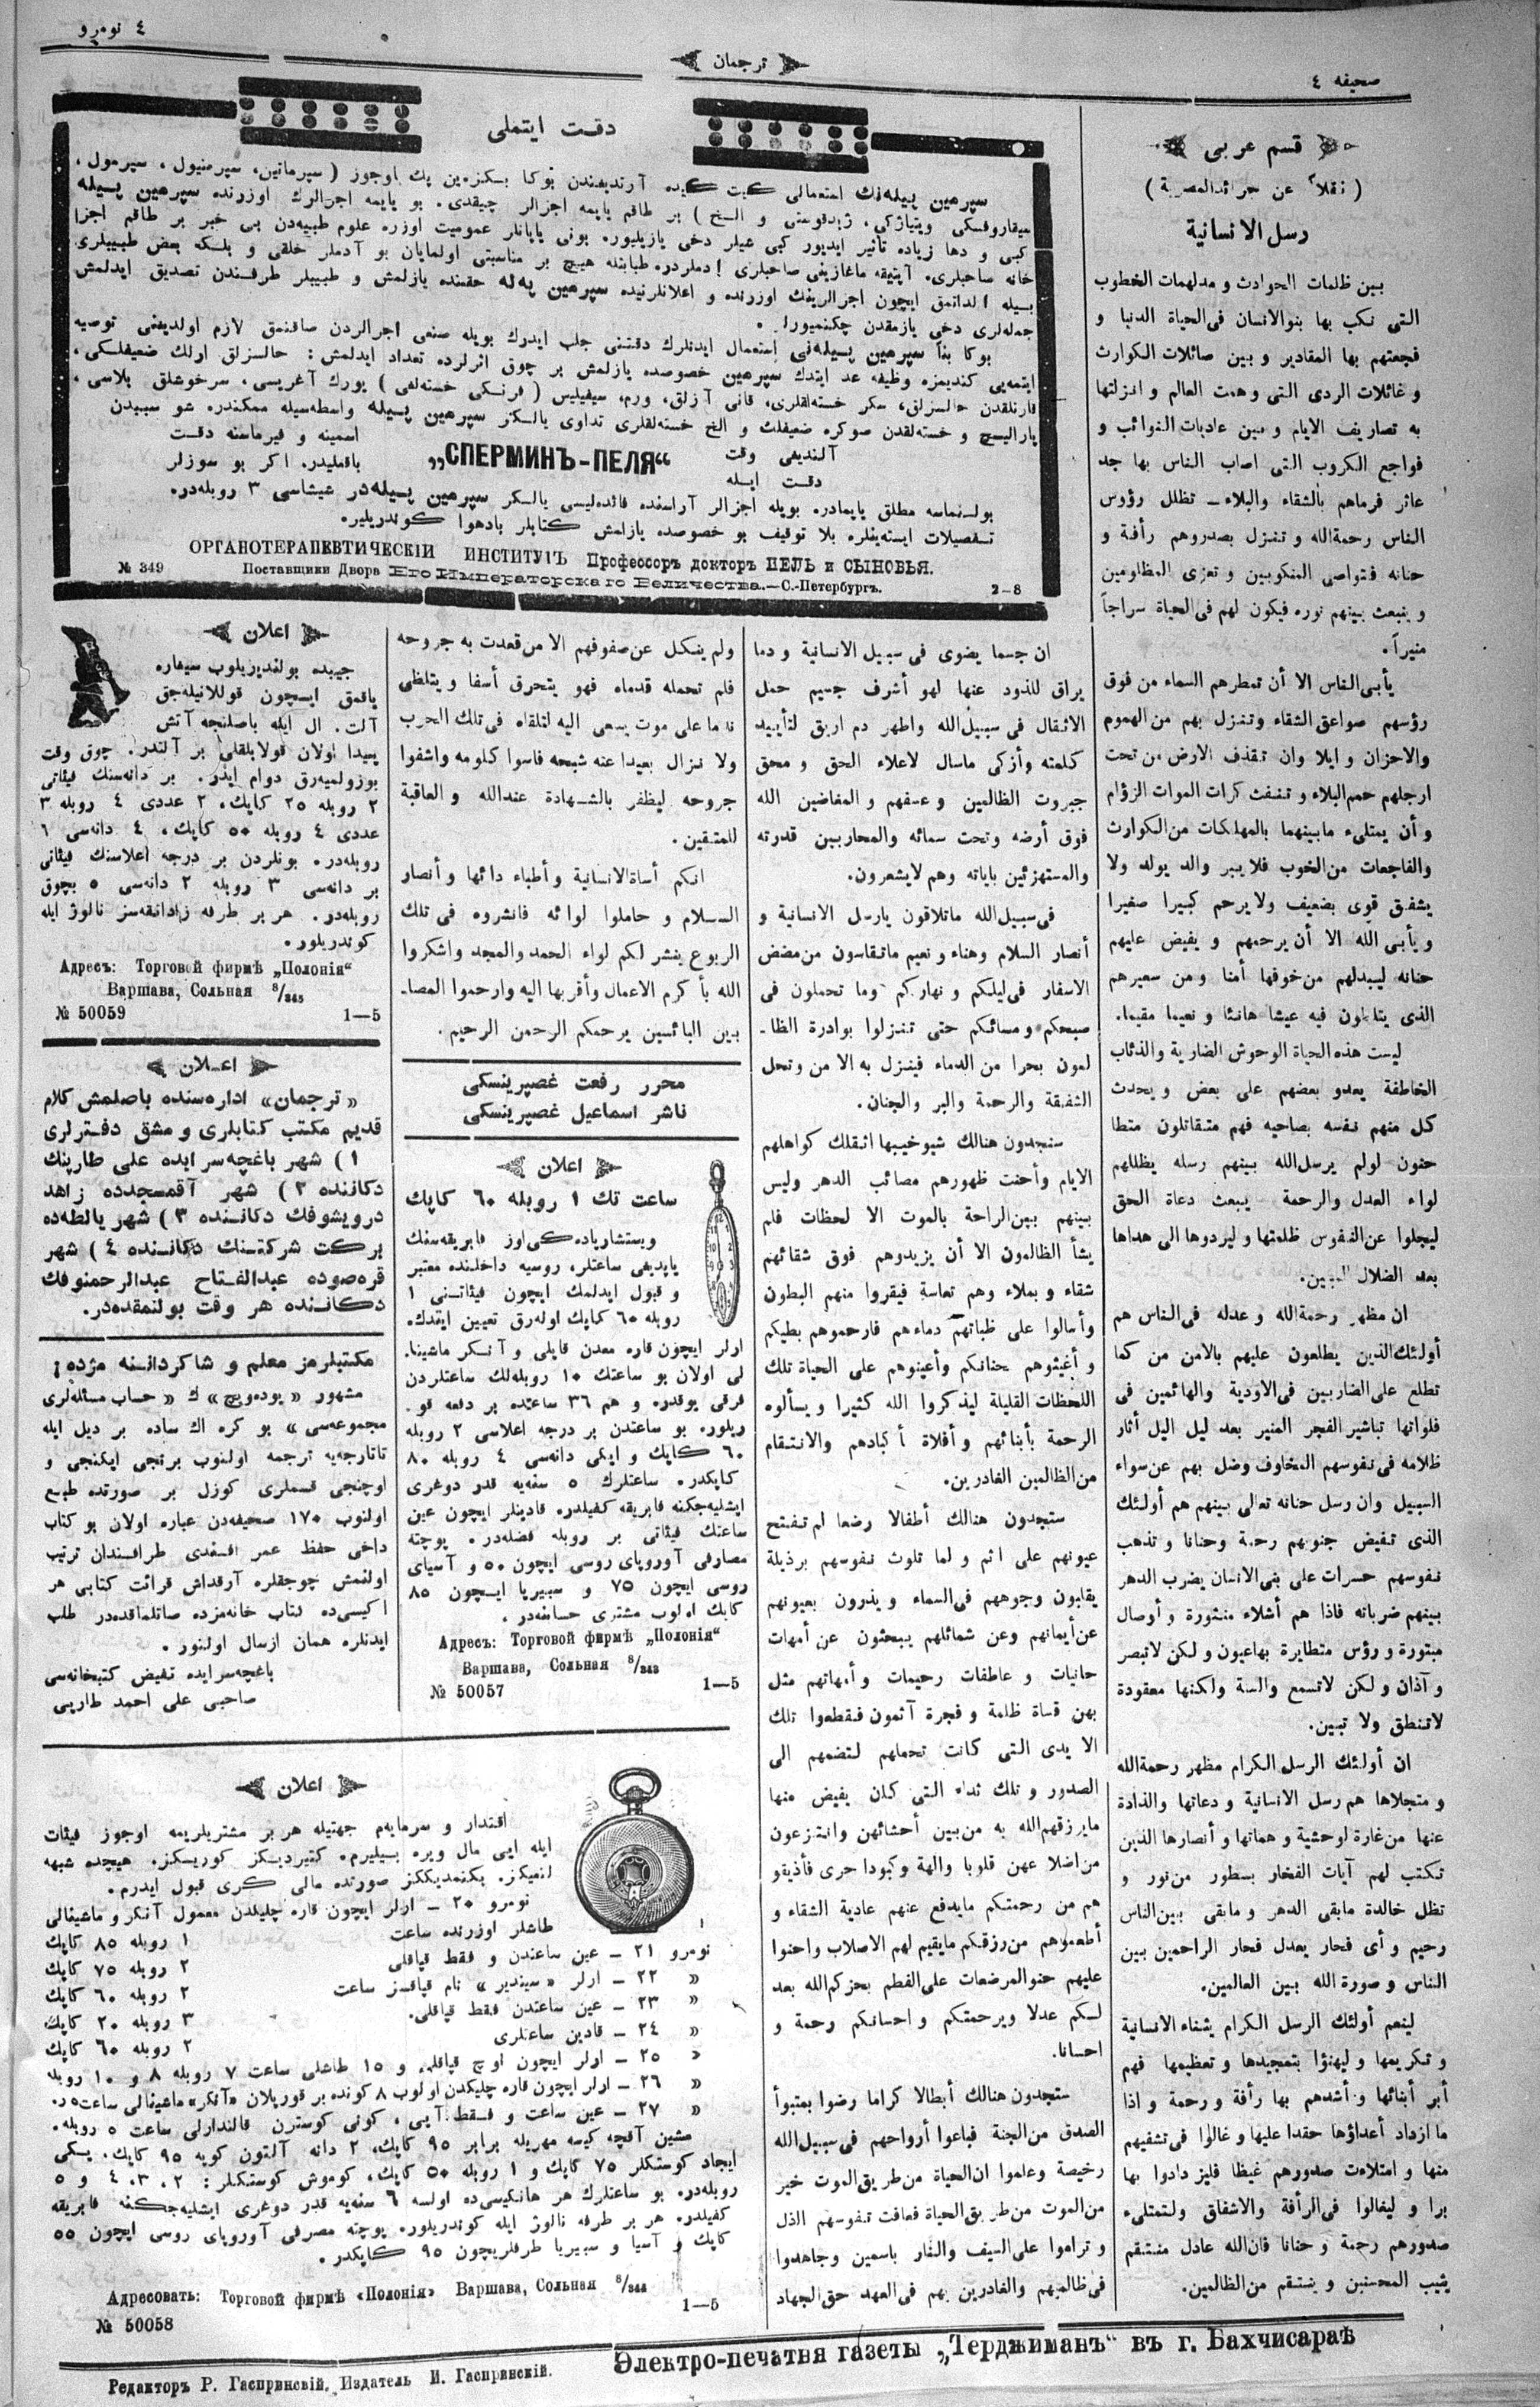 صحیفه ٤
ترجمان
٤ نومرو
قسم عربی
( نقلاً عن جرائدالمصریة )
رسل الانسانیة
بین ظلمات الحوادث و مدلهمات الخطوب
التی نکب بها بنوالانسان فی‌الحیاة الدنیا و
فجعتهم بها المقادیر و بین صائلات الکوارث
و غائلات الردی التی وهمت العالم و انزلتها
به تصاریف الایام و بین عادیات النوائب و
فواجع الکروب التی اصاب الناس بها جد
عاثر فرماهم بالشقاء والبلاء ــ تظلل رؤوس
الناس رحمةالله و تنزل بصدورهم رأفة و
حنانه فتواصی المنکوبین و تعزی المظلومین
و ینبعث بینهم نوره فیکون لهم فی‌الحیاة سراجاً
منیراً.
یأبی‌الناس الا أن تمطرهم السماء من فوق
رؤسهم صواعق الشقاء وتنزل بهم من الهموم
والاحزان و ایلا وان تقذف الارض من تحت
ارجلهم حمم البلاء و تنفث کرات الموات الزؤام
و أن یمتلیء مابینهما بالمهلکات من‌الکوارث
والفاجعات من‌الخوب فلا یبر والد یولد ولا
یشفق قوی بضعیف ولا یرحم کبیرا صغیرا
و یأبی الله الا أن یرحمهم و یفیض علیهم
حنانه لیبدلهم من خوفها أمنا و من سعیرهم
الذی یتلظون فیه عیشا هانئا و نعیما مقیما.
لیست هذه الحیاة الوحوش الضاریة والذئاب
الخاطفة یعدو بعضهم علی بعض و یحدث
کل منهم نفسه بصاحبه فهم متقاتلون متطا
حنون لولم یرسل‌الله بینهم رسله یظللهم
لواء العدل والرحمة یبعث دعاة الحق
لیجلوا عن‌النفوس ظلمتها و لیردوها الی هداها
بعد الضلال المبین.
ان مظهر رحمةالله و عدله فی‌الناس هم
أولئك‌الذین یطلعون علیهم بالامن من کما
تطلع علی‌الضاربین فی‌الاودیة والهائمین فی
فلواتها تباشیر الفجر المنیر بعد لیل الیل أثار
ظلامه فی نفوسهم المخاوف وضل بهم عن سواء
السبیل وان رسل حنانه تعالی بینهم هم أولئك
الذی تفیض جنوبهم رحمة وحنانا و تذهب
نفوسهم حسرات علی بنی‌الانسان یضرب الدهر
بینهم ضرباته فاذا هم أشلاء منثورة و أوصال
مبتورة و رؤس متطایرة بهاعیون و لکن لاتبصر
و آذان و لکن لاتسمع والسنة ولکنها معقودة
لاتنطق ولا تبین.
ان أولئك الرسل الکرام مظهر رحمةالله
و متجلاها هم رسل الانسانیة و دعاتها والذادة
عنها من غارة لوحشیة و هماتها و أنصارها الذین
تکتب لهم آیات الفخار بسطور من نور و
تظل خالدة مابقی الدهر و مابقی بین‌الناس
رحیم و أی فخار یعدل فخار الراحمین بین
الناس و صورة الله بین العالمین.
لینعم أولئك الرسل الکرام بشفاء الانسانیة
و تکریمها و لیهنؤا بتمجیدها و تعظیمها فهم
أبر أبنائها و أشدهم بها رأفة و رحمة و اذا
ما ازداد أعداؤها حقدا علیها و غالوا فی تشفیهم
منها و امتلاءت صدورهم غیظا فلیز دادوا بها
برا و لیغالوا فی‌الرأفة والاشفاق ولتمتلیء
صدورهم رحمة و حنانا فان‌الله عادل منتقم
یثیب المحسنین و ینتقم من‌الظالمین.
دقت ایتملی
سپرمین پیله‌نك استعمالی کیت کیده آرتدیغندن بوکا بکزه‌ین پك اوجوز ( سپرماتین، سپرمنیول ، سپرمول ،
سیقاروفسکی ویتیاژکی، ژیدقوستی و الخ ) بر طاقم یاپمه اجزالر چیقدی. بو یاپمه اجزالرك اوزرنده سپرمین پسیله
کبی و دها زیاده تأثیر ایدیور کبی شیلر دخی یازیلیور. بونی یاپانلر عمومیت اوزره علوم طبیه‌دن بی خبر بر طاقم اجزا
خانه صاحبلری، آپتیقه ماغازینی صاحبلری آدملردر. طبابتله هیچ بر مناسبتی اولمایان بو آدملر خلقی و بلکه بعض طبیبلری
بسیله آلداتمق ایچون اجزالرینك اوزرنده و اعلانلرنیده سپرمین په‌له حقنده یازلمش و طبیبلر طرفندن تصدیق ایدلمش
جمله‌لری دخی یازمقدن چکنمیورلر.
بوکا بناً سپرمین پسیله‌نی استعمال ایدنلرك دقتنی جلب ایدرك بویله صنعی اجزالردن صاقنمق لازم اولدیغنی توصیه
ایتمه‌یی کندیمزه وظیفه عد ایتدك سپرمین خصوصده یازلمش بر چوق اثرلرده تعداد ایدلمش: حالسزلق اولك ضعیفلکی،
قارتلقدن حالسزلق، سکر خسته‌لقلری، قانی آزلق، ورم، سیفیلیس ( فرنکی خسته‌لغی ) یورك آغریسی، سرخوشلق بلاسی،
پارالیچ و خسته‌لقدن صوکره ضعیفلك و الخ خسته‌لقلری تداوی یالکز سپرمین پسیله واسطه‌سیله ممکندره شو سببدن
آلندیغی وقت
دقت ایله
„СПЕРМИНЪ-ПЕЛЯ“
اسمینه و فیرماسنه دقت
باقملیدر. اکر بو سوزلر
بولنماسه مطلق یاپمادره بویله اجزالر آراسنده فائده‌لیسی یالکز سپرمین پسیله‌در شیشاسی ٣ روبله‌در.
تفصیلات ایسته‌ینلره بلا توقیف بو خصوصده یازلمش کتابلر بادهوا کوندریلیر.
ОРГАНОТЕРАПЕВТИЧЕСКІЙ ИНСТИТУТЪ Профессоръ докторъ ПЕЛЬ и СЫНОВЬЯ.
№ 349 Поставщики Двора Его Императорскаго Величества.—С.-Петербургъ. 2-8
ان جسما یضوی فی سبیل الانسانیة و دما
یراق للذود عنها لهو أشرف جسیم حمل
الاثقال فی سبیل‌الله واطهر دم اریق لتأیید
کلمته وأزکی ماسال لاعلاء الحق و محق
جبروت الظالمین و عسفهم و المغاضین الله
فوق أرضه وتحت سمائه والمحاربین قدرته
والمستهزئین بایاته وهم لایشعرون.
فی‌سبیل‌الله ماتلاقون یارسل الانسانیة و
أنصار السلام وهناء و نعیم ماتقاسون من مضض
الاسفار فی‌لیلکم و نهارکم وما تحملون فی
صبحکم و مسائکم حتی تنزلوا بوادرة الظا-
لمون بحرا من الدماء فینزل به الا من وتحل
الشفقة والرحمة والبر والجنان.
ستجدون هنالك شیوخیبها اثقلك کواهلهم
الایام وأحنت ظهورهم مصائب الدهر ولیس
بینهم بین‌الراحة بالموت الا لحظات فلم
یشأ الظالمون الا أن یزیدوهم فوق شقائهم
شقاء و بملاء وهم تعاسة فیقروا منهم البطون
وأسالوا علی ظباتهم دماءهم فارحموهم بطیکم
و أغیثوهم حنانکم وأعینوهم علی الحیاة تلك
اللحظات القلیلة لیذکروا الله کثیرا و یسألوه
الرحمة بأبنائهم و أفلاة أکبادهم والانتقام
من‌الظالمین الغادرین.
ستجدون هنالك أطفالا رضعا لم تفتح
عیونهم علی اثم و لما تلوث نفوسهم برذیلة
یقلبون وجوههم فی‌السماء و یدرون بعیونهم
عن‌أیمانهم وعن شمائلهم یبحثون عن أمهات
حانیات و عاطفات رحیمات و أمهاتهم مثل
بهن قساة ظلمة و فجرة آثمون فقطعوا تلك
الا یدی التی کانت تحملهم لتضمهم الی
الصدور و تلك ثداء التی کان یفیض منها
مایرزقهم‌الله به من‌بین أحشائهن وانتزعون
من‌اضلا عهن قلوبا والهة وکبودا حری فأذیقو
هم من رحمتکم مایدفع عنهم عادیة الشقاء و
أطعموهم من‌رزقکم مایقیم لهم الاصلاب واحنوا
علیهم حنوالمرضعات علی‌الفطم بحزکم‌الله بعد
لکم عدلا ویرحمتکم و احسانکم رحمة و
احسانا.
ستجدون هنالك أبطالا کراما رضوا بمتبوأ
الصدق من‌الجنة فباعوا أرواحهم فی سبیل‌الله
رخیصة وعلموا ان‌الحیاة من‌طریق‌الموت خیر
من‌الموت من‌طریق‌الحیاة فعافت نفوسهم الذل
و تراموا علی‌السیف والنار باسمین وجاهدوا
فی‌ظالمیهم والغادرین بهم فی‌العهد حق‌الجهاد
ولم ینکل عن صفوفهم الا من قعدت به جروحه
فلم تحمله قدماه فهو یتحرق أسفا و یتلظی
ندما علی موت یسعی الیه لتلقاه فی‌تلك الحرب
ولا تزال بعیدا عنه شبحه فاسوا کلومه واشفوا
جروحه لیظفر بالشهادة عندالله والعاقبة
للمتقین.
انکم أساة‌الانسانیة و أطباء دائها و أنصار
السلام و حاملوا لوائه فانشروه فی تلك
الربوع ینشر لکم لواء الحمد والمجد واشکروا
الله بأکرم الاعمال وأقربها الیه وارحموا المصا-
بین البائسین یرحمکم الرحمن الرحیم.
محرر رفعت غصپرینسکی
ناشر اسماعیل غصپرینسکی
اعلان
ساعت تك ١ روبله ٦٠ کاپك
ویستشاریاده‌کی اوز فابریقه‌سنك
یاپدیغی ساعتلر، روسیه داخلنده معتبر
و قبول ایدلمك ایچون فیئاتنی ١
روبله ٦٠ کاپك اوله‌رق تعیین ایتدك.
ارلر ایچون قاره معدن قاپلی و آنکر ماشینا-
لی اولان بو ساعتك ١٠ روبله‌لك ساعتلردن
فرقی یوقدره و هم ٣٦ ساعتده بر دفعه قو-
ریلور. بو ساعتدن بر درجه اعلاسی ٢ روبله
٦٠ کاپك و ایکی دانه‌سی ٤ روبله ٨٠
کاپکدر. ساعتلرك ٥ سنه‌یه قدر دوغری
ایشلیه‌جکنه فابریقه کفیلدره قادینلر ایچون عین
ساعتك فیئاتی بر روبله فضله‌در. پوچته
مصارفی آوروپای روسی ایچون ٥٠ و آسیای
روسی ایچون ٧٥ و سیبریا ایچون ٨٥
کاپك اولوب مشتری حسابنه‌در.
Адресъ: Торговой фирмѣ „Полонія“
Варшава, Сольная 8/343
№ 50057 1—5
اعلان
جیبده بولندیریلوب سیغاره
یاقمق ایچون قوللانیله‌جق
آلت. ال ایله باصلنجه آتش
پیدا اولان قولایلقلی بر آلتدر. چوق وقت
بوزولمیه‌رق دوام ایدر. بر دانه‌سنك فیئاتی
٢ روبله ٢٥ کاپك، ٢ عددی ٤ روبله ٣
عددی ٤ روبله ٥٠ کاپك، ٤ دانه‌سی ٦
روبله‌در. بونلردن بر درجه اعلاسنك فیئاتی
بر دانه‌سی ٣ روبله ٢ دانه‌سی ٥ بچوق
روبله‌در. هر بر طرفه زاداتقه‌سز نالوژ ایله
کوندریلور.
Адресъ: Торговой фирмѣ „Полонія“
Варшава, Сольная 8/343
№ 50059 1—5
اعلان
«ترجمان» اداره‌سنده باصلمش کلام
قدیم مکتب کتابلری و مشق دفترلری
١ ) شهر باغچه‌سرایده علی طارپینك
دکاننده ٢ ) شهر آقمسجدده زاهد
درویشوفك دکاننده ٣ ) شهر یالطه‌ده
برکت شرکتنك دکاننده ٤ ) شهر
قره‌صوده عبدالفتاح عبدالرحمنوفك
دکاننده هر وقت بولنمقده‌در.
مکتبلرمز معلم و شاکرداننه مژده!
مشهور «یوده‌ویچ» ك «حساب مسئله‌لری
مجموعه‌سی» بو کره اك ساده بر دیل ایله
تاتارجه‌یه ترجمه اولنوب برنجی ایکنجی و
اوچنجی قسملری کوزل بر صورتده طبع
اولنوب ١٧٠ صحیفه‌دن عباره اولان بو کتاب
داخی حفظ عمر افندی طرافندان ترتیب
اولنمش چوجقلره آرقداش قرائت کتابی هر
ایکیسی‌ده کتاب خانه‌مزده صاتلماقده‌در طلب
ایدنلره همان ارسال اولنور.
باغچه‌سرایده تفیض کتبخانه‌سی
صاحبی علی احمد طارپی
اعلان
اقتدار و سرمایه‌م جهتیله هر بر مشتریلریمه اوجوز فیئات
ایله ایی مال ویره بیلیرم. کتیردیکز کوریکز. هیچده شبهه
لنمیکز. بکنمدیککز صورتده مالی کری قبول ایدرم.
نومرو ٢٠ ــ ارلر ایچون قاره چلیکدن معمول آنکر و ماشینالی
طاشلر اوزرنده ساعت ١ روبله ٨٥ کاپك
نومرو ٢١ ــ عین ساعتدن و فقط قپاقلی ٢ روبله ٧٥ کاپك
« ٢٢ ــ ارلر «سیندیر» نام قپاقسز ساعت ٢ روبله ٦٠ کاپك
« ٢٣ ــ عین ساعتدن فقط قپاقلی. ٣ روبله ٢٠ کاپك
« ٢٤ ــ قادین ساعتلری ٢ روبله ٦٠ کاپك
« ٢٥ ــ ارلر ایچون اوچ قپاقلی و ١٥ طاشلی ساعت ٧ روبله ٨ و ١٠ روبله
« ٢٦ ــ ارلر ایچون قاره چلیکدن اولوب ٨ کونده بر قوریلان «آنکر» ماشینالی ساعت ٥ ر.
« ٢٧ ــ عین ساعت و فقط آیی، کونی کوسترن قالندارلی ساعت ٥ روبله.
مشین آقچه کیسه مهریله برابر ٩٥ کاپك، ٢ دانه آلتون کوپه ٩٥ کاپك. یسکی
ایجاد کوستکلر ٧٥ کاپك و ١ روبله ٥٠ کاپك، کوموش کوستکلر: ٢ ، ٣، ٤ و ٥
روبله‌در. بو ساعتلرك هر هانکیسی‌ده اولسه ٦ سنه‌یه قدر دوغری ایشلیه‌جکنه فابریقه
کفیلدر. هر بر طرفه نالوژ ایله کوندریلور. پوچته مصرفی آوروپای روسی ایچون ٥٥
کاپك و آسیا و سیبریا طرفلریچون ٩٥ کاپکدر.
Адресовать: Торговой фирмѣ «Полонія» Варшава, Сольная 8/344
№ 50058 1—5
Электро-печатня газеты „Терджиманъ“ въ г. Бахчисараѣ
Редакторъ Р. Гаспринскій, Издатель И. Гаспринскій.